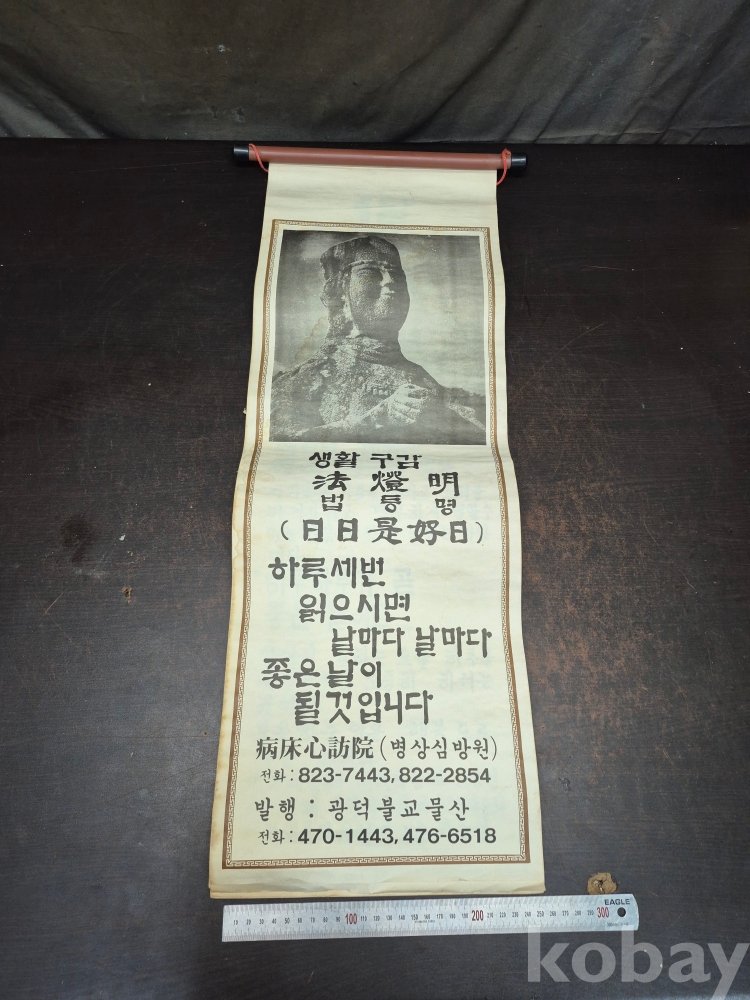 생활 구감
法燈明
법등명
(日日是好日)
하루세번
읽으시면
날마다 날마다
좋은날이
될것입니다
病床心訪院(병상심방원)
전화: 823-7443, 822-2854
발행 : 광덕불교물산
전화: 470-1443, 476-6518
EAGLE
10 20 30 40 50 60 70 80 90 100 110 120 130 140 150 160 170 180 190 200 210 220 230 240 250 260 270 280 290 300
kobay